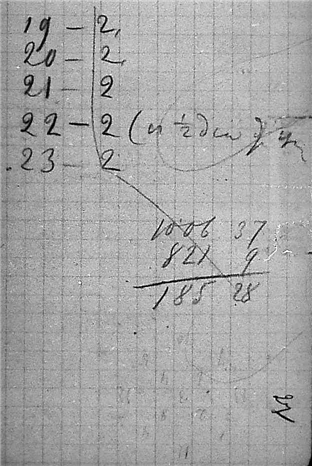 19 - 2,
20 - 2,
21 - 2
22 - 2 (и ½ дня)
23 - 2
1006 37
821 9
185 28